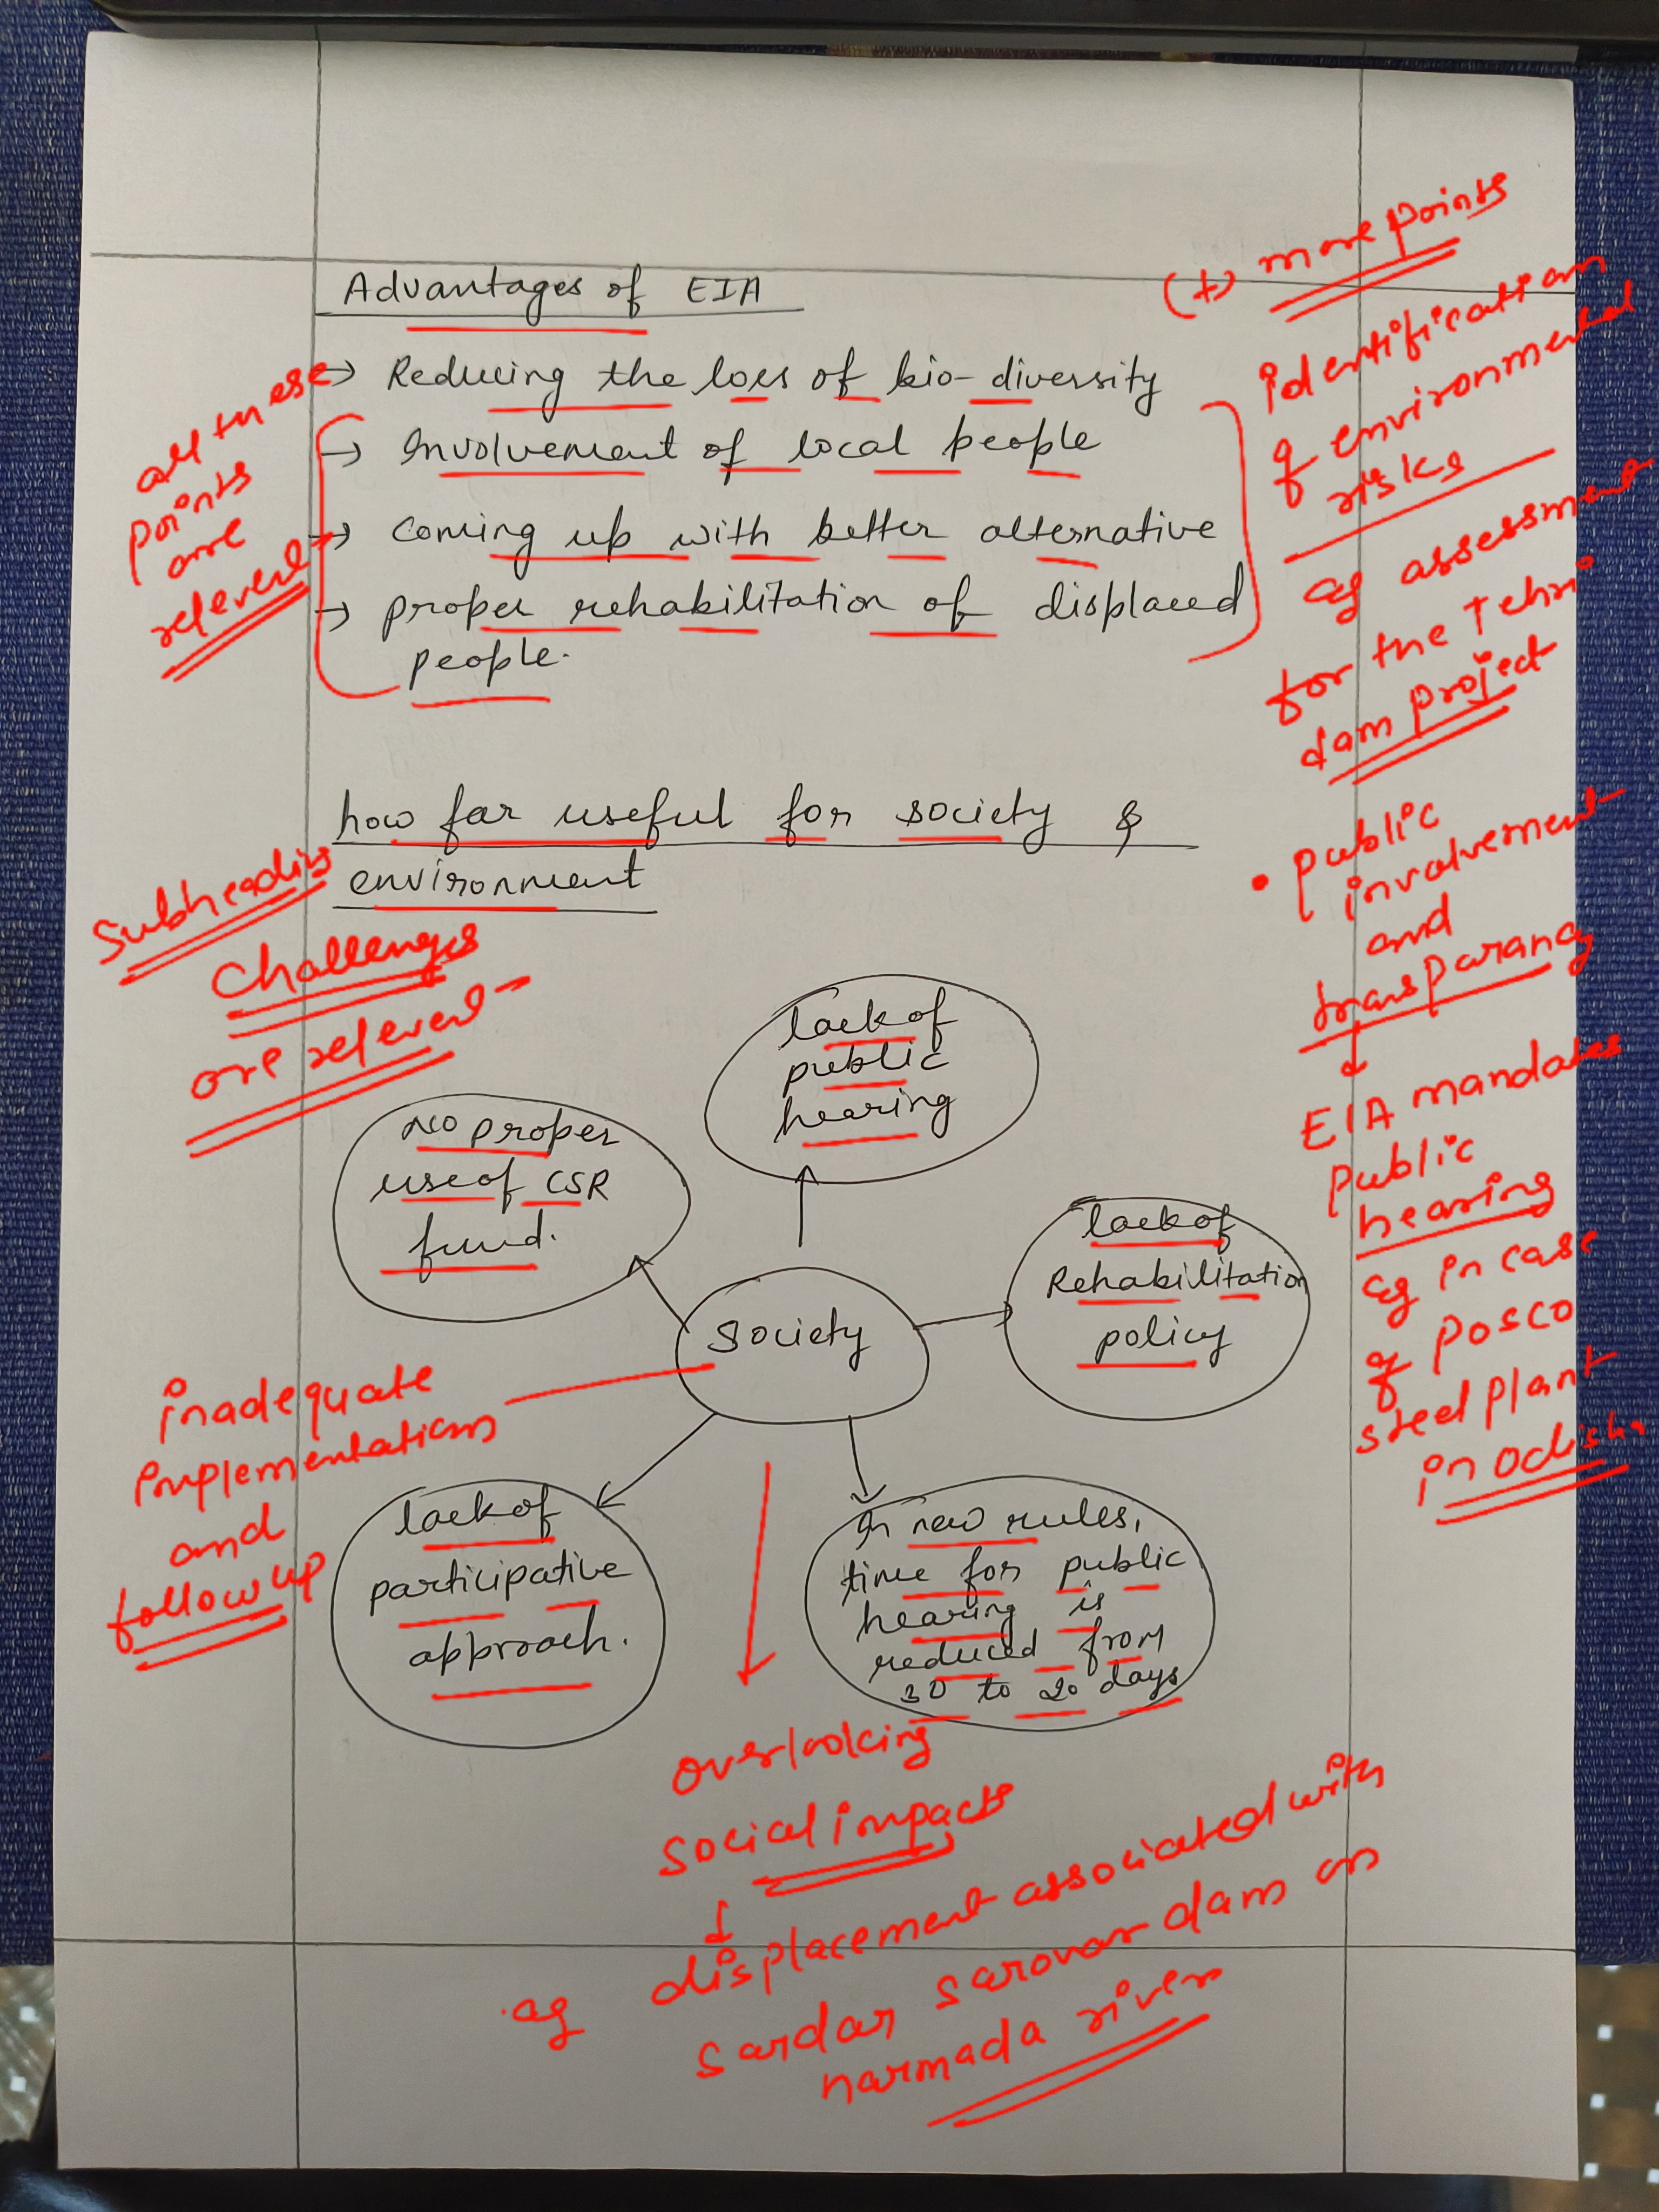 Advantages of EIA
→ Reducing the loss of bio-diversity
→ Involvement of local people
→ Coming up with better alternative
→ proper rehabilitation of displaced
people.
all these
points
are
relevent
(+) more points
identification
of environmental
risks
eg assessment
for the Tehri
dam project
• public
involvement
and
transparancy
↓
EIA mandates
public
hearing
eg in case
of posco
steel plant
in odisha
how far useful for society &
environment
Subheading
challenges
are relevent
lack of
public
hearing
No proper
use of CSR
fund.
lack of
Rehabilitation
policy
Society
inadequate
implementations
and
follow up
lack of
participative
approach.
In new rules,
time for public
hearing is
reduced from
30 to 20 days
overlooking
social impacts
↓
eg displacement associated with
sardar sarovar dam on
narmada river